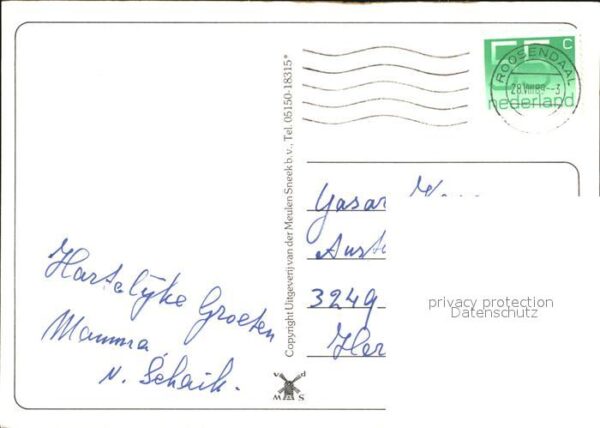 55 C
nederland
ROOSENDAAL
28.VIII.89.-3
Copyright Uitgeverij van der Meulen Sneek b.v., Tel. 05150-18315*
Hartelijke Groeten
Mamma
v. Schaik.
3249
Her
privacy protection
Datenschutz
v d
M S